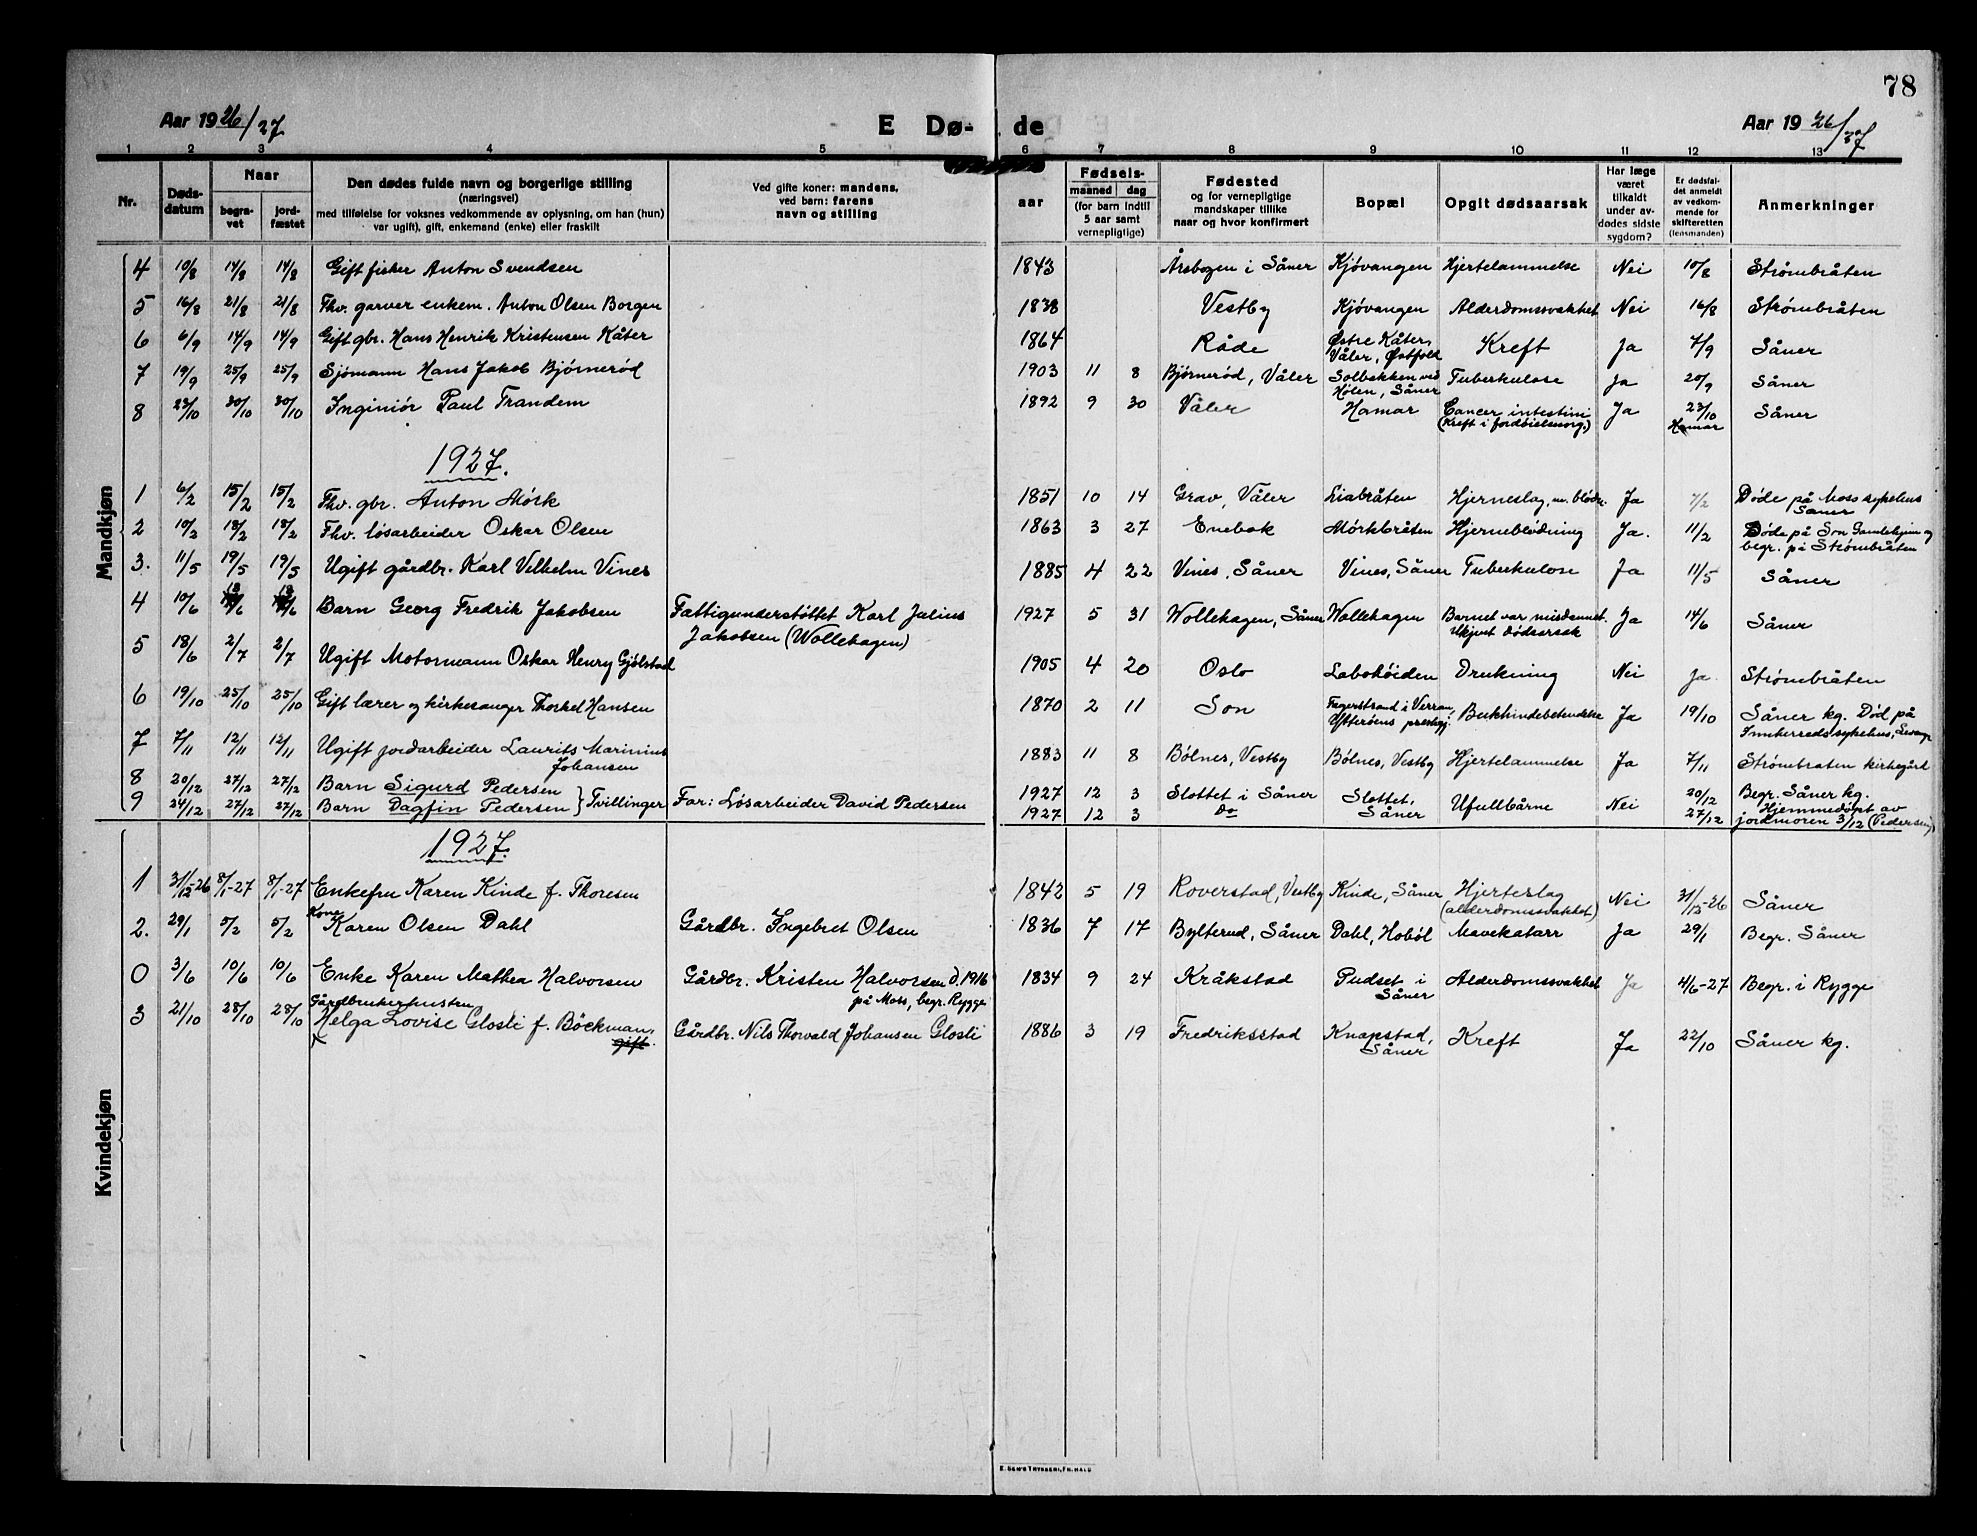 78
Aar 1926/27 E Dø- de Aar 1926/27
1 2 3 4 5 6 7 8 9 10 11 12 13
Nr.
Døds-
datum
Naar
begra-
vet
jord-
fæstet
Den dødes fulde navn og borgerlige stilling
(næringsvei)
med tilføielse for voksnes vedkommende av oplysning, om han (hun)
var ugift), gift, enkemand (enke) eller fraskilt
Ved gifte koner: mandens,
ved barn: farens
navn og stilling
aar
Fødsels-
maaned dag
(for barn indtil
5 aar samt
vernepligtige)
Fødested
og for vernepligtige
mandskaper tillike
naar og hvor konfirmert
Bopæl
Opgit dødsaarsak
Har læge
været
tilkaldt
under av-
dødes sidste
sygdom?
Er dødsfal-
det anmeldt
av vedkom-
mende for
skifteretten
(lensmanden)
Anmerkninger
Mandkjøn
4 10/8 14/8 14/8 Gift fisker Anton Svendsen 1843 Årsbogen i Såner Kjøvangen Hjertelammelse Nei 10/8 Strømbråten
5 16/8 21/8 21/8 Fhv. garver enkem. Anton Olsen Borgen 1838 Vestby Kjøvangen Alderdomssvakhet Nei 16/8 Strømbråten
6 6/9 14/9 14/9 Gift gbr. Hans Henrik Kristensen Kåter 1864 Råde Østre Kåter, Våler, Østfold Kreft Ja 7/9 Såner
7 19/9 25/9 25/9 Sjømann Hans Jakob Bjørnerød 1903 11 8 Bjørnerød, Våler Solbakken ved Hølen, Såner Tuberkulose Ja 20/9 Såner
8 23/10 30/10 30/10 Inginiør Paul Trandem 1892 9 30 Våler Hamar Cancer intestini (Kreft i fordøielsesorg.) Ja 23/10 Hamar Såner
1927.
1 6/2 15/2 15/2 Fhv. gbr. Anton Mørk 1851 10 14 Grav, Våler Liabråten Hjerneslag, m. blødn. Ja 7/2 Døde på Moss sykehus Såner
2 10/2 18/2 18/2 Fhv. løsarbeider Oskar Olsen 1863 3 27 Enebak Mørkbråten Hjerneblødning Ja. 11/2 Døde på Son Gamlehjem og begr. på Strømbråten
3. 11/5 19/5 19/5 Ugift gårdbr. Karl Vilhelm Vines 1885 4 22 Vines, Såner Vines, Såner Tuberkulose Ja 11/5 Såner
4 10/6 Barn Georg Fredrik Jakobsen Fattigunderstøttet Karl Julius Jakobsen (Wollehagen) 1927 5 31 Wollehagen, Såner Wollehagen Barnet var misdannet. Ukjent dødsårsak Ja 14/6 Såner
5 18/6 2/7 2/7 Ugift Motormann Oskar Henry Gjølstad 1905 4 20 Oslo Labohøiden Drukning Nei Ja Strømbråten
6 19/10 25/10 25/10 Gift lærer og kirkesanger Thorkel Hansen 1870 2 11 Son Fagerstrand i Verran, Ytterøens prestegj. Bukhindebetendelse Ja 19/10 Såner kg. Død på Innherreds sykehus, Levanger
7 7/11 12/11 12/11 Ugift jordarbeider Laurits Marinius Johansen 1883 11 8 Bølnes, Vestby Bølnes, Vestby Hjertelammelse Ja 7/11 Strømbråten kirkegård
8 20/12 27/12 27/12 Barn Sigurd Pedersen } Tvillinger Far: Løsarbeider David Pedersen 1927 12 3 Slottet i Såner Slottet, Såner Ufullbårne Nei 20/12 Begr. Såner kg.
9 24/12 27/12 27/12 Barn Dagfin Pedersen 1927 12 3 Do 27/12 Hjemmedøpt av jordmoren 3/12 (Pedersen)
1927.
Kvindekjøn
1 31/12-26 8/1-27 8/1-27 Enkefru Karen Kinde f. Thoresen 1842 5 19 Roverstad, Vestby Kinde, Såner Hjerteslag (alderdomssvakhet) Nei 31/12-26 Såner
2. 29/1 5/2 5/2 Kone Karen Olsen Dahl Gårdbr. Ingebret Olsen 1836 7 17 Bylterud, Såner Dahl, Hobøl Mavekatarr Ja 29/1 Begr. Såner
0 3/6 10/6 10/6 Enke Karen Mathea Halvorsen Gårdbr. Kristen Halvorsen d. 1916 på Moss, begr. Rygge 1834 9 24 Kråkstad Pudset i Såner Alderdomssvakhet Ja 4/6-27 Begr. i Rygge
3 21/10 28/10 28/10 Gårdbrukerhustru Helga Lovise Glosli f. Böckman, gift. Gårdbr. Nils Thorvald Johansen Glosli 1886 3 19 Fredriksstad Knapstad, Såner Kreft Ja 22/10 Såner kg.
E. SEM'S TRYKKERI, FR.HALD